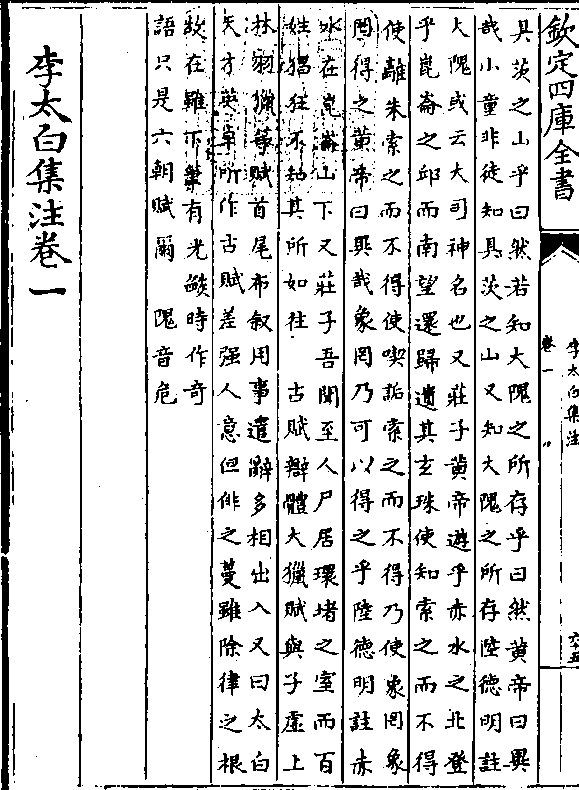 欽定四庫全書
李太白集注
卷一
六十五
具茨之山乎曰然若知大隗之所存乎曰然黄帝曰異
哉小童非徒知具茨之山又知大隗之所存陸德明註
大隗或云大司神名也又莊子黄帝遊乎赤水之北登
乎崑崙之邱而南望還歸遺其玄珠使知索之而不得
使離朱索之而不得使喫詬索之而不得乃使象罔象
罔得之黄帝曰異哉象罔乃可以得之乎陸德明註赤
水在崑崙山下又莊子吾聞至人尸居環堵之室而百
姓猖狂不知其所如往 古賦辯體大獵賦與子虚上
林羽獵等賦首尾布叙用事遣辭多相出入又曰太白
天才英卓所作古賦差强人意但俳之蔓雖除律之根
故在雖下筆有光燄時作奇
語只是六朝賦爾 隗音危
李太白集注卷一